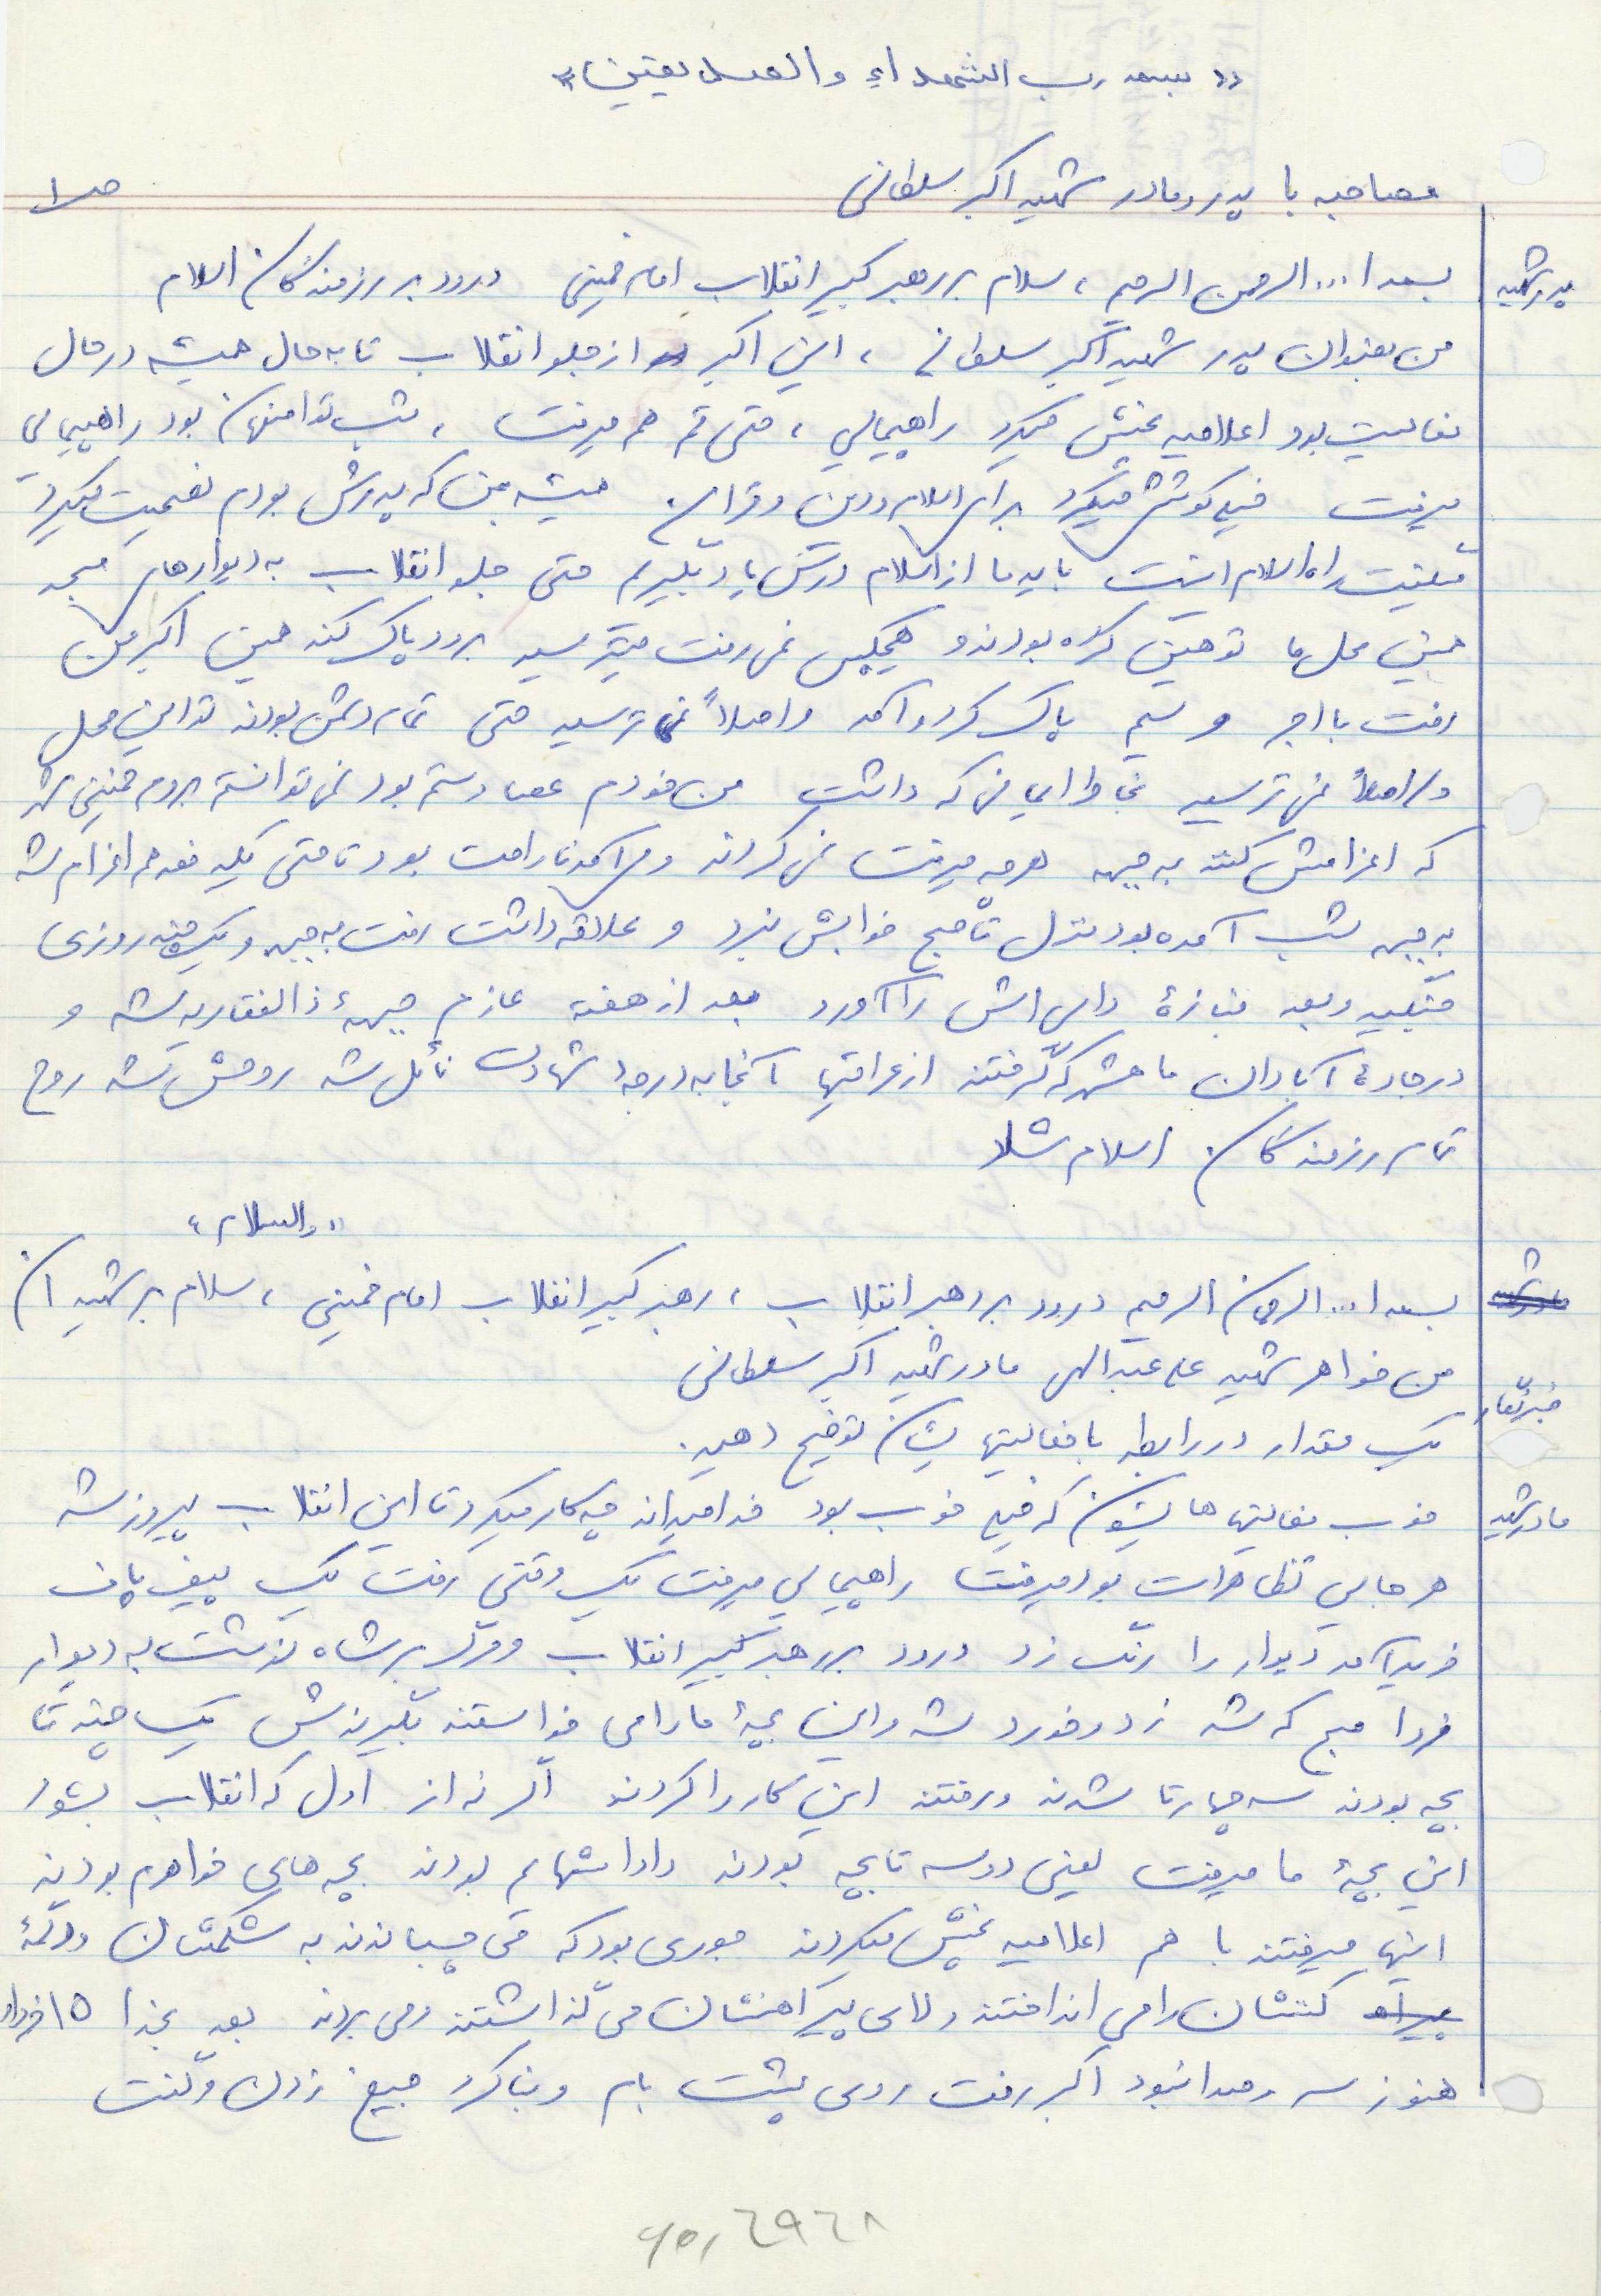 « بسم رب الشهداء والصدیقین »
مصاحبه با پدر و مادر شهید اکبر سلطانی
ص ۱
پدر شهید
بسم ا... الرحمن الرحیم ، سلام بر رهبر کبیر انقلاب امام خمینی درود بر رزمندگان اسلام
من بعنوان پدر شهید اکبر سلطانی ، این اکبر از جلو انقلاب تا به حال همیشه در حال
فعالیت بود اعلامیه پخش میکرد راهپیمایی ، حتی قم هم میرفت ، شب تو اصفهان بود راهپیمایی
میرفت خیلی کوشش میکرد برای اسلام و دین و قرآن همیشه بمن که پدرش بودم نصیحت میکرد
میگفت راه اسلام اینست باید ما از اسلام درس یاد بگیریم حتی جلو انقلاب به دیوارهای مسجد
همین محل ما توهین کرده بودند و هیچکس نمی رفت میترسید برود پاک کند همین اکبر من
رفت با اجر و سیم پاک کرد و آمد و اصلاً نمی ترسید حتی تمام دشمن بودند تو این محل
ولی اصلاً نمی ترسید من خودم عصا دستم بود نمی توانستم بروم خمینی شهر
که اعزامش کنند به جبهه هرچه میرفت نمی کردند و می آمد ناراحت بود تا حتی یکبه دفعه هم اعزام شد
به جبهه شب آمده بود منزل تا صبح خوابش نبرد و علاقه داشت رفت به جبهه و یک چند روزی
جنگید و بعد جنازهٔ دایی اش را آورد بعد از هفته عازم جبههٔ ذالفقاریه شد و
در جادهٔ آبادان ماهشهر که گرفتند از عراقیها آنجا به درجهٔ شهادت نائل شد روحش شاد روح
تمام رزمندگان اسلام شاد
« والسلام »
بسم ا... الرحمان الرحیم درود بر رهبر انقلاب ، رهبر کبیر انقلاب امام خمینی ، سلام بر شهیدان
من خواهر شهید علی عبدالهی مادر شهید اکبر سلطانی
خبرنگار
یک مقدار در رابطه با فعالیتهایشان توضیح دهید .
مادر شهید
خوب فعالیتهایشون که خیلی خوب بود خدا میداند چه کار میکرد تا این انقلاب پیروز شد
هر جایی تظاهرات بود میرفت راهپیمایی میرفت یک وقتی رفت یک پیف پاف
خرید آمد دیوار را رنگ زد درود بر رهبر کبیر انقلاب و مرگ بر شاه نوشت به دیوار
فردا صبح که شد زد و خورد شد و این بچهٔ ما را می خواستند بگیرندش یک چند تا
بچه بودند سه چهار تا شدند و رفتند این کار را کردند اگر نه از اول که انقلاب بشود
این بچهٔ ما میرفت یعنی دو سه تا بچه بودند داداشهایم بودند بچه های خواهرم بودند
اینها میرفتند با هم اعلامیه پخش میکردند جوری بود که می چسباندند به شکمشان و دگمهٔ
کتشان را می انداختند و لای پیراهنشان می گذاشتند و می بردند بعد بخدا ۱۵ خرداد
هنوز سر و صدا نبود اکبر رفت روی پشت بام و بنا کرد جیغ زدن و گفت
۶۵،۶۹۶۸